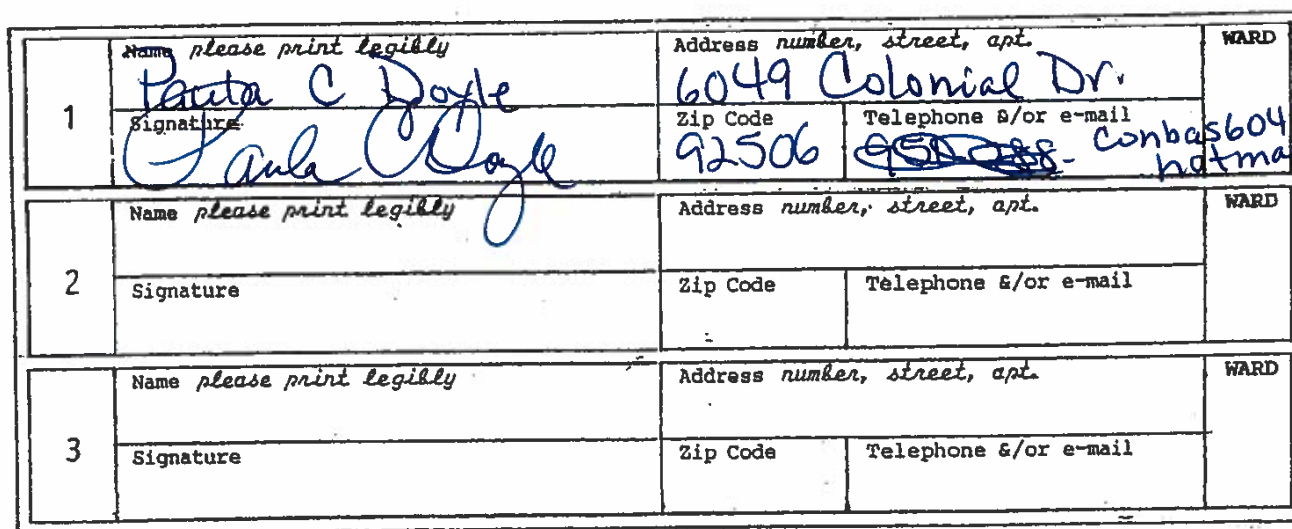 1
Name please print legibly
Paula C Doyle
Signature
Paula C Doyle
Address number, street, apt.
6049 Colonial Dr.
Zip Code
92506
Telephone &/or e-mail
conbas604
hotma
WARD
2
Name please print legibly
Signature
Address number, street, apt.
Zip Code
Telephone &/or e-mail
WARD
3
Name please print legibly
Signature
Address number, street, apt.
Zip Code
Telephone &/or e-mail
WARD